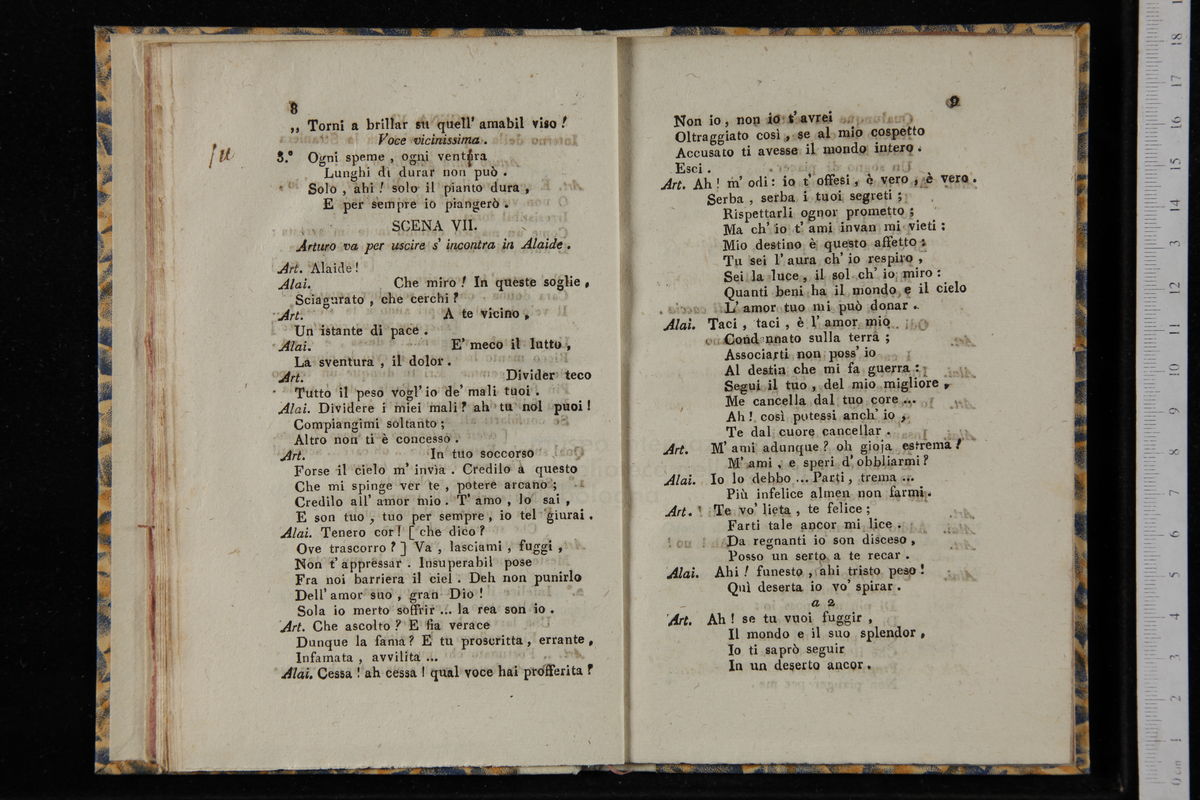 8
„ Torni a brillar su quell' amabil viso !
Voce vicinissima .
3.° Ogni speme , ogni ventura
Lunghi di durar non può .
Solo , ahi ! solo il pianto dura ,
E per sempre io piangerò .
SCENA VII.
Arturo va per uscire s' incontra in Alaide .
Art. Alaide !
Alai. Che miro ! In queste soglie ,
Sciagurato , che cerchi ?
Art. A te vicino ,
Un istante di pace .
Alai. E' meco il lutto ,
La sventura , il dolor .
Art. Divider teco
Tutto il peso vogl' io de' mali tuoi .
Alai. Dividere i miei mali ? ah tu nol puoi !
Compiangimi soltanto ;
Altro non ti è concesso .
Art. In tuo soccorso
Forse il cielo m' invia . Credilo a questo
Che mi spinge ver te , potere arcano ;
Credilo all' amor mio . T' amo , lo sai ,
E son tuo , tuo per sempre , io tel giurai .
Alai. Tenero cor ! [ che dico ?
Ove trascorro ? ] Va , lasciami , fuggi ,
Non t' appressar . Insuperabil pose
Fra noi barriera il ciel . Deh non punirlo
Dell' amor suo , gran Dio !
Sola io merto soffrir ... la rea son io .
Art. Che ascolto ? E fia verace
Dunque la fama ? E tu proscritta , errante ,
Infamata , avvilita ...
Alai. Cessa ! ah cessa ! qual voce hai profferita ?
9
Non io , non io t' avrei
Oltraggiato così , se al mio cospetto
Accusato ti avesse il mondo intero .
Esci .
Art. Ah ! m' odi : io t' offesi , è vero , è vero .
Serba , serba i tuoi segreti ;
Rispettarli ognor prometto ;
Ma ch' io t' ami invan mi vieti :
Mio destino è questo affetto :
Tu sei l' aura ch' io respiro ,
Sei la luce , il sol ch' io miro :
Quanti beni ha il mondo e il cielo
L' amor tuo mi può donar .
Alai. Taci , taci , è l' amor mio
Cond nnato sulla terra ;
Associarti non poss' io
Al destin che mi fa guerra :
Segui il tuo , del mio migliore ,
Me cancella dal tuo core ...
Ah ! così potessi anch' io ,
Te dal cuore cancellar .
Art. M' ami adunque ? oh gioja estrema !
M' ami , e speri d' obbliarmi ?
Alai. Io lo debbo ... Parti , trema ...
Più infelice almen non farmi .
Art. Te vo' lieta , te felice ;
Farti tale ancor mi lice .
Da regnanti io son disceso ,
Posso un serto a te recar .
Alai. Ahi ! funesto , ahi tristo peso !
Quì deserta io vo' spirar .
a 2
Art. Ah ! se tu vuoi fuggir ,
Il mondo e il suo splendor ,
Io ti saprò seguir
In un deserto ancor .